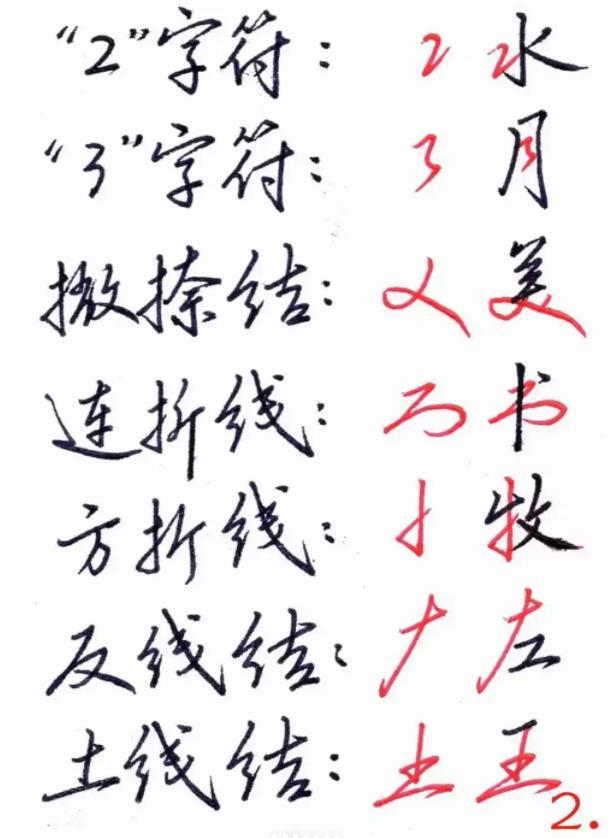 “2”字符: 2 水
“3”字符: 3 月
撇捺结: 美
连折线: 书
方折线: 牧
反线结: 左
土线结: 王
2.